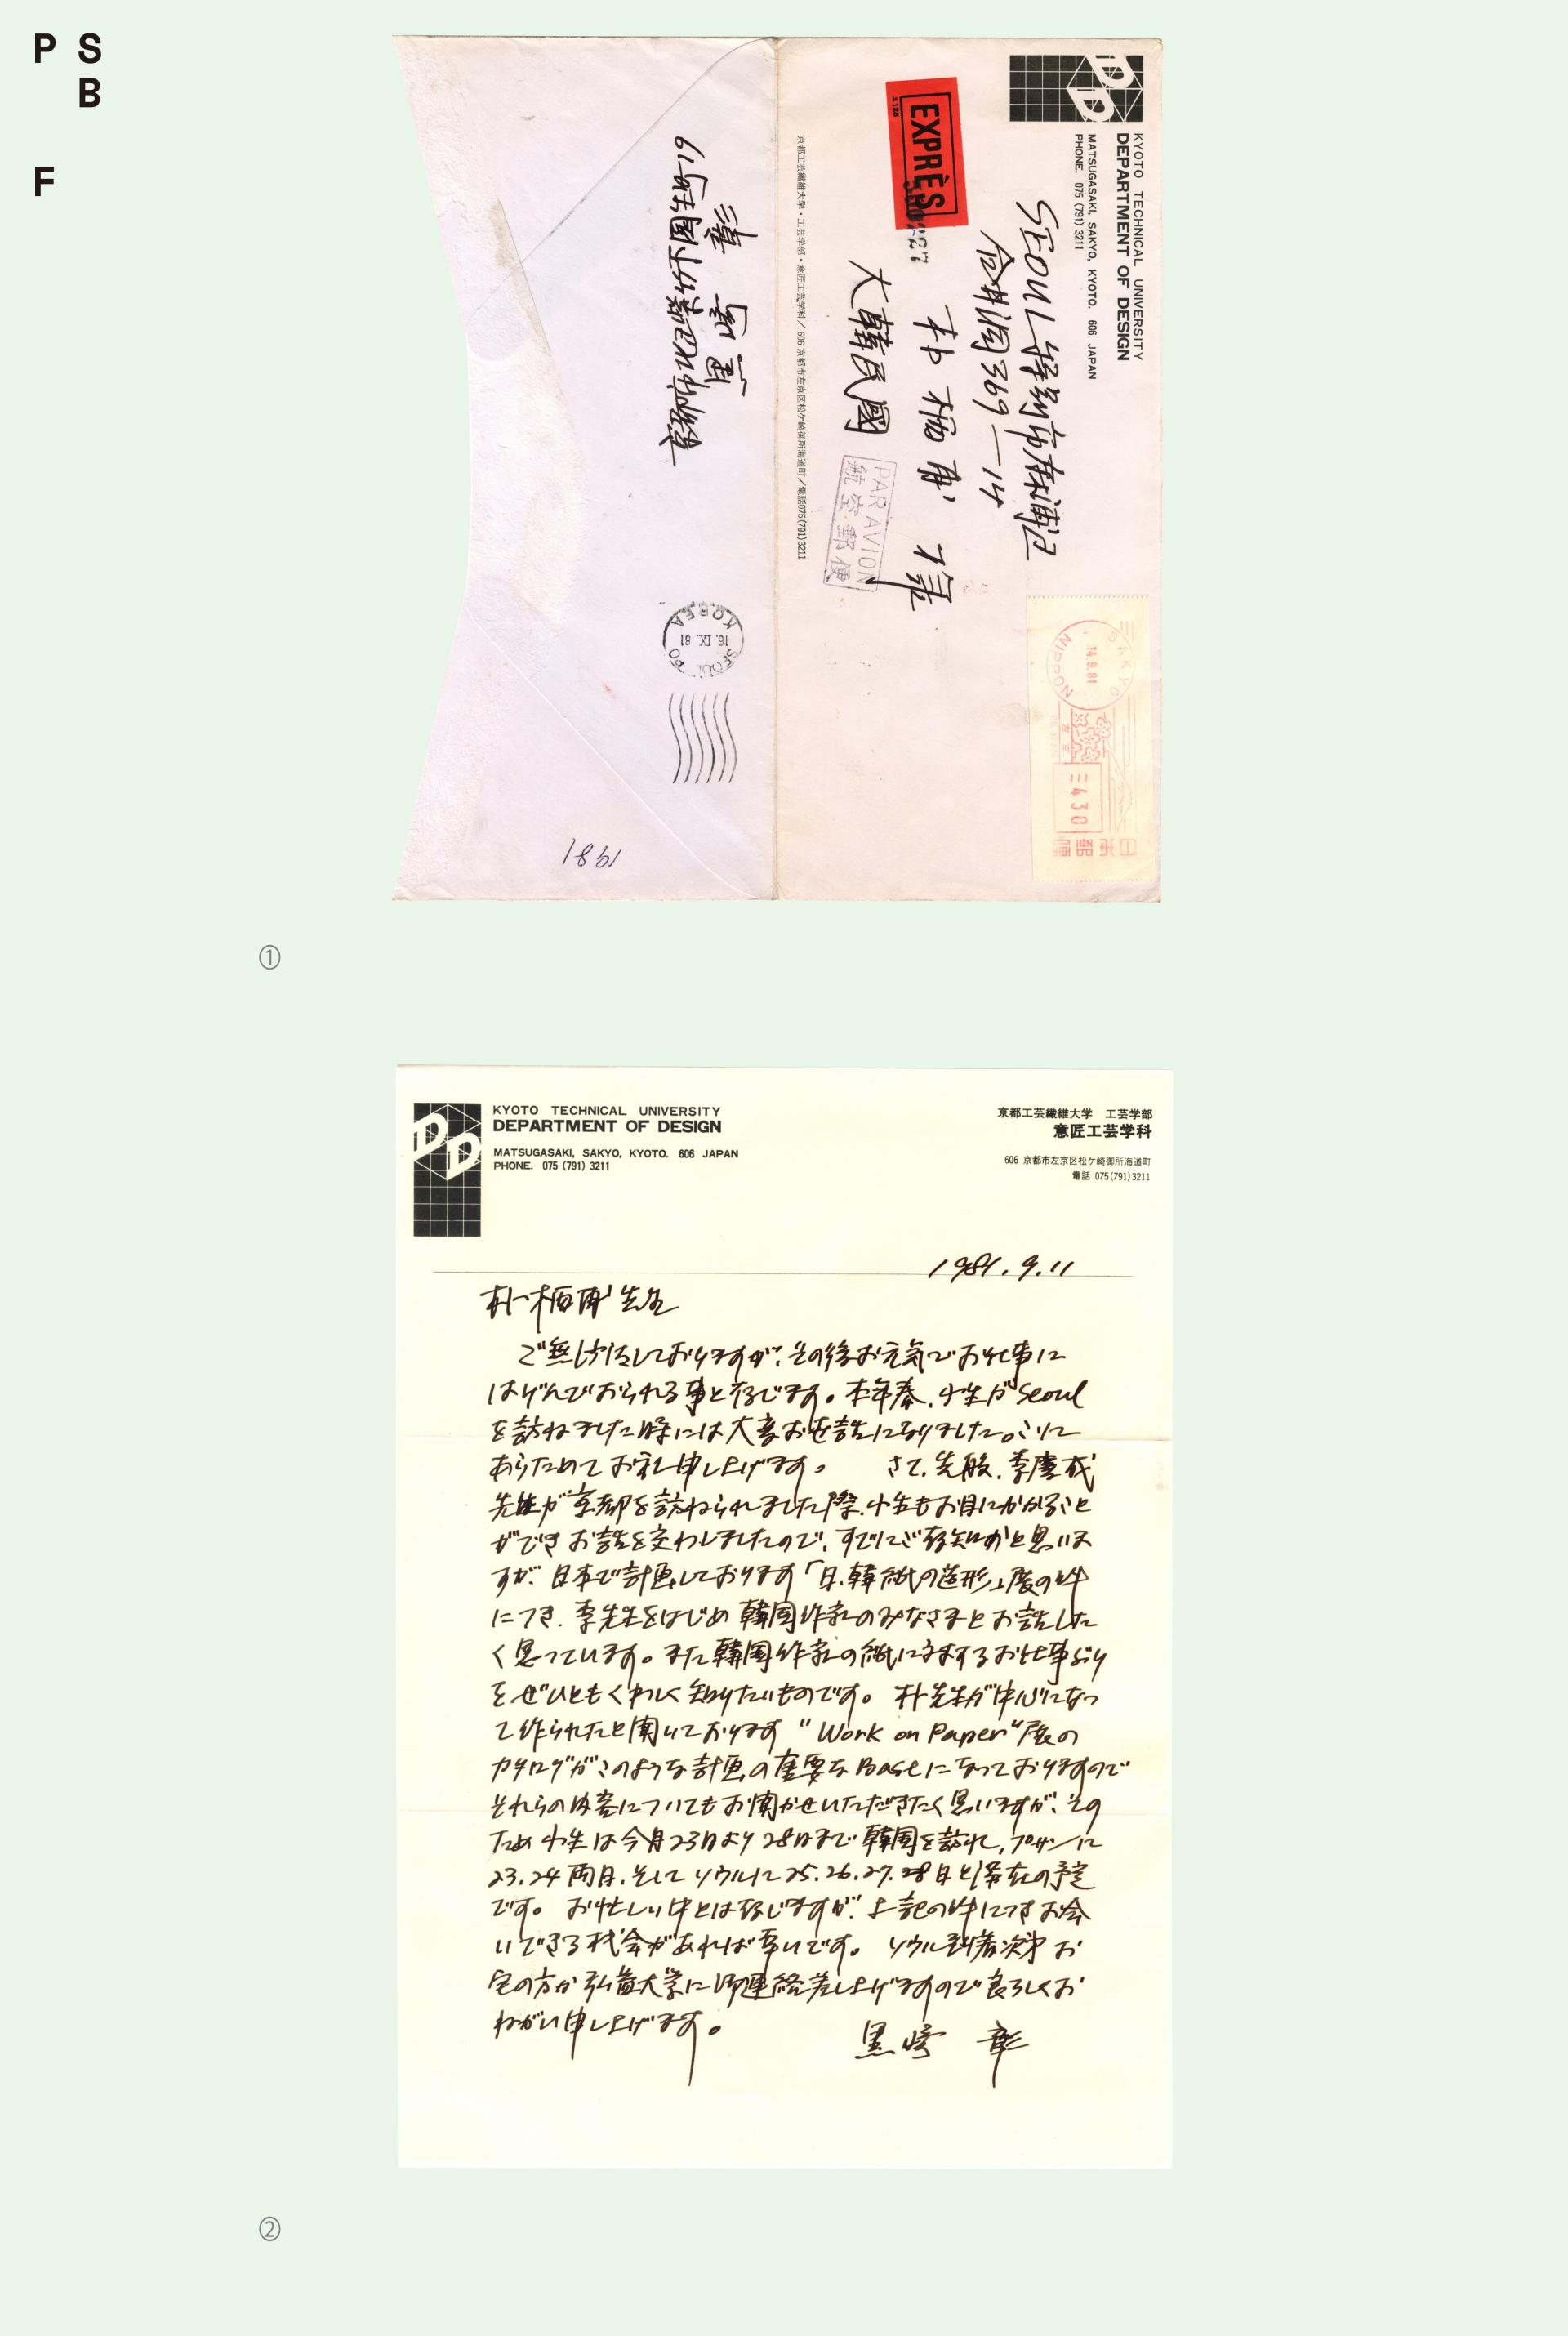 P S
B
F
KYOTO TECHNICAL UNIVERSITY
DEPARTMENT OF DESIGN
MATSUGASAKI, SAKYO, KYOTO. 606 JAPAN
PHONE. 075 (791) 3211
EXPRÈS
SEOUL 特別市麻浦区
合井洞369-14
朴栖甫 様
大韓民國
PAR AVION
航空郵便
SAKYO
14.9.81
NIPPON
430
日本郵便
京都工芸繊維大学・工芸学部・意匠工芸学科/606 京都市左京区松ケ崎御所海道町/電話075(791)3211
SEOUL
16. IX. 81
KOREA
1981
①
KYOTO TECHNICAL UNIVERSITY
DEPARTMENT OF DESIGN
MATSUGASAKI, SAKYO, KYOTO. 606 JAPAN
PHONE. 075 (791) 3211
京都工芸繊維大学 工芸学部
意匠工芸学科
606 京都市左京区松ケ崎御所海道町
電話 075(791)3211
1981.9.11
朴栖甫先生
ご無沙汰しておりますが、その後お元気でお仕事に
はげんでおられる事と存じます。本年春、小生がSeoul
を訪ねました時には大変お世話になりました。ここに
あらためてお礼申し上げます。 さて、先般、李慶成
先生が京都を訪ねられました際、小生もお目にかかること
ができお話を交わしましたので、すでにご存知かと思いま
すが、日本で計画しております「日、韓紙の造形」展の件
につき、李先生をはじめ韓国作家のみなさまとお話した
く思っています。また韓国作家の紙に対するお仕事ぶり
をぜひともくわしく知りたいものです。 朴先生が中心になっ
て作られたと聞いております "Work on Paper"展の
カタログがこのような計画の重要なBaseになっておりますので
それらの内容についてもお聞かせいただきたく思いますが、その
ため小生は今月23日より28日まで韓国を訪れ、プサンに
23.24両日、そしてソウルに25.26.27.28日と滞在の予定
です。 お忙しい中とは存じますが、上記の件につきお会
いできる機会があれば幸いです。 ソウル到着次第お
宅の方か弘益大学に御連絡差し上げますので良ろしくお
ねがい申し上げます。
黒崎 彰
②